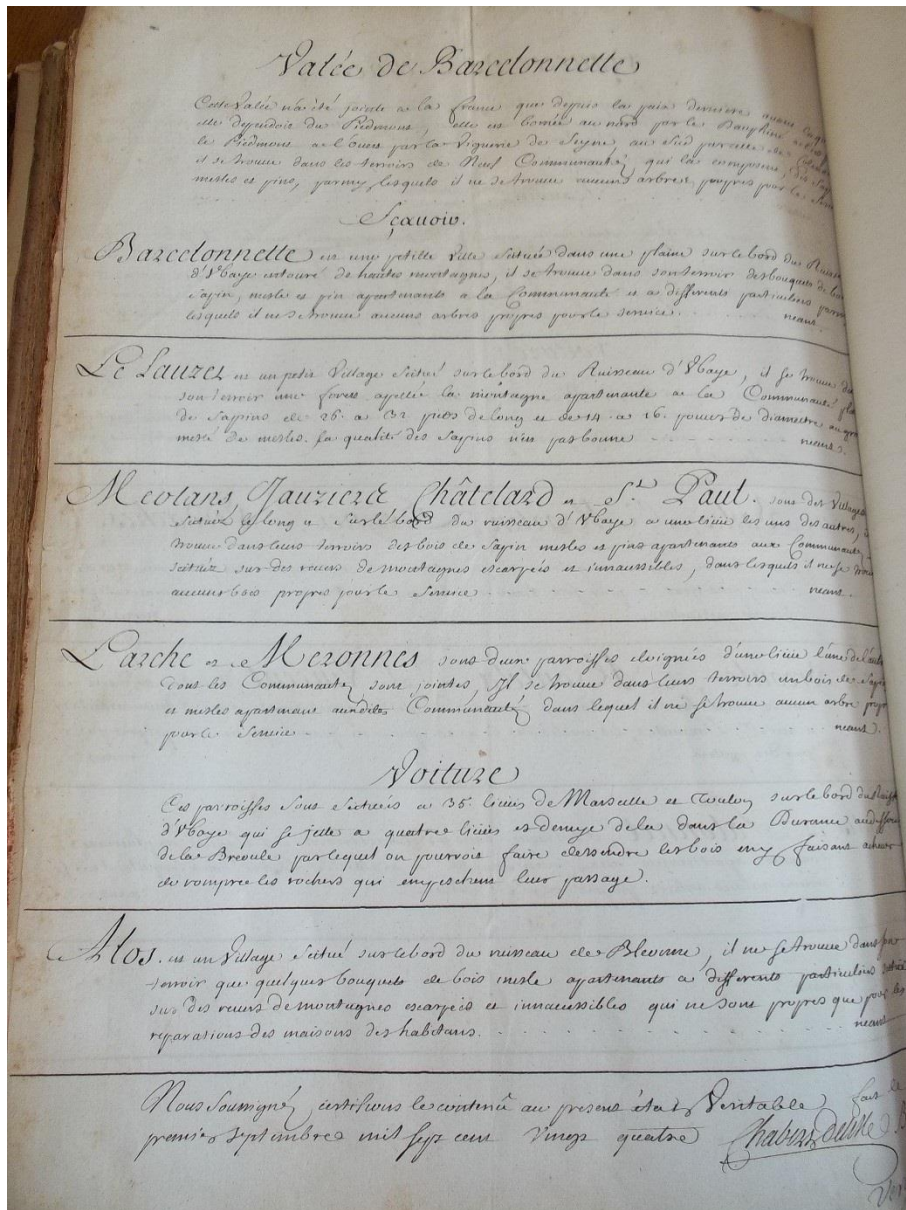 Valée de Barcelonnette
Cette Valée n'a été jointe a la france que depuis la paix derniere avant
elle dependoit du Piedmont, elle est bornée au nord par le Dauphiné
le Piedmont a l'ouest par la Viguerie de Seyne, au sud par celle de
il se trouve dans les terroirs de Neuf Communautez qui la composent, des
mesles et pins, parmy lesquels il ne se trouve aucuns arbres propres pour le
Sçauoir.
Barcelonnette est une petitte Ville scituée dans une plaine sur le bord du
d'Vbaye entouré de hautes montagnes, il se trouve dans son terroir des bouquets de
sapin, mesle et pin apartenants a la Communauté et a differents particuliers parmi
lesquels il ne se trouve aucuns arbres propres pour le service. neant.
Le Lauzet est un petit Village scitué sur le bord du Ruisseau d'Vbaye, il se trouve
son terroir une forest apellée la montagne apartenante a la Communauté
de sapins de 26. a 32 pieds de long et de 14. a 16. pouces de diamettre au gros
meslé de mesles. la qualité des sapins n'est pas bonne neant.
Meolans Jauziers Châtelard et St. Paul. sont des Villages
scituéz le long et sur le bord du ruisseau d'Vbaye a une lieüe les uns des autres,
trouve dans leurs terroirs des bois de sapin mesles et pins apartenants aux Communautez
scituéz sur des revers de montagnes escarpéés et innaussibles, dans lesquels il ne se
aucuns bois propres pour le Service neant.
Larche et Meronnes sont deux parroisses eloignées d'une lieüe l'une de
dont les Communautez sont jointes, Il se trouve dans leurs terroirs un bois de
et mesles apartenant auxdites Communautez dans lequel il ne se trouve aucun arbre
pour le Service neant.
Voiture
Ces parroisses sont scituéés a 35. lieües de Marseille et Toulon sur le bord du
d'Vbaye qui se jette a quatre lieües et demye de la dans la Durance
de la Breoule par lequel on pourroit faire dessendre les bois en y faisant
de rompre les rochers qui empeschent leur passage.
Alos. est un Village scitué sur le bord du ruisseau de Bleonne, il ne se trouve dans son
terroir que quelques bouquets de bois mesle apartenants a differents particuliers
sur des revers de montagnes escarpéés et innaccessibles qui ne sont propres que pour les
reparations des maisons des habitans. neant
Nous Soussignéz certifions le contenû au present état Veritable fait le
premier Septembre mil sept cent vingt quatre